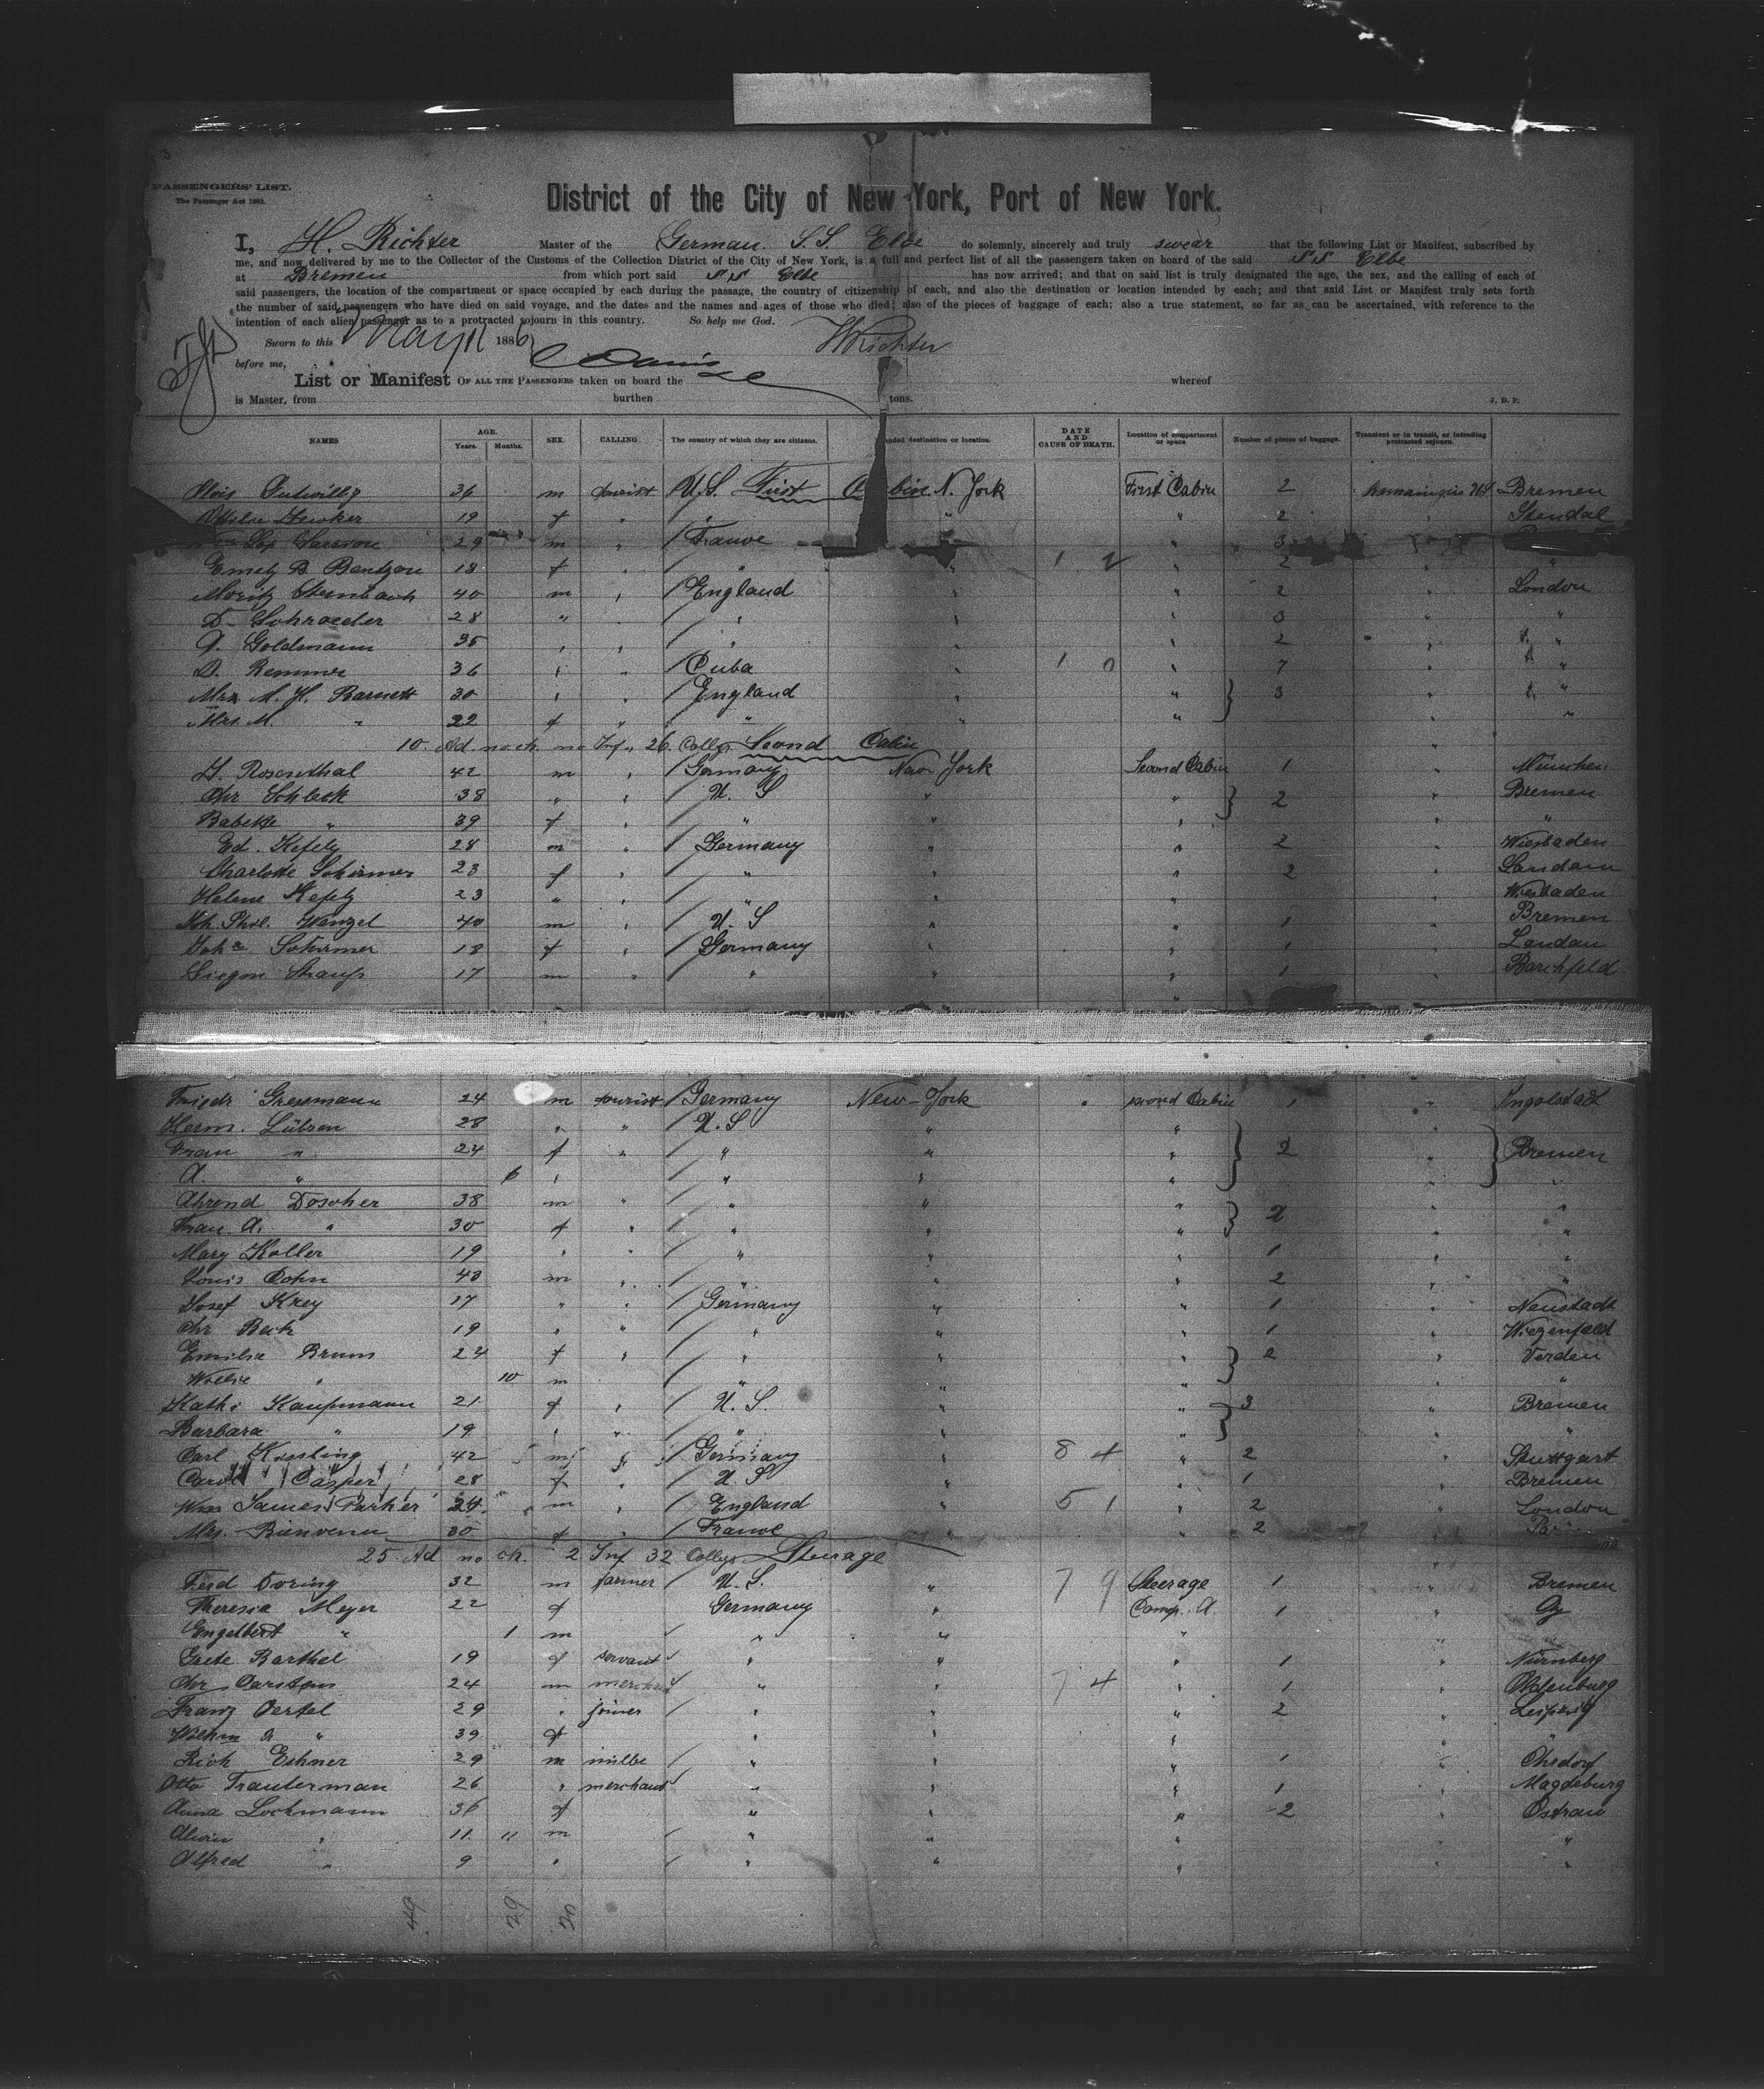 PASSENGERS' LIST.
The Passenger Act 1882.
District of the City of New York, Port of New York.
I, H. Richter Master of the German S.S. Elbe do solemnly, sincerely and truly swear that the following List or Manifest, subscribed by
me, and now delivered by me to the Collector of the Customs of the Collection District of the City of New York, is a full and perfect list of all the passengers taken on board of the said SS Elbe
at Bremen from which port said SS Elbe has now arrived; and that on said list is truly designated the age, the sex, and the calling of each of
said passengers, the location of the compartment or space occupied by each during the passage, the country of citizenship of each, and also the destination or location intended by each; and that said List or Manifest truly sets forth
the number of said passengers who have died on said voyage, and the dates and the names and ages of those who died; also of the pieces of baggage of each; also a true statement, so far as can be ascertained, with reference to the
intention of each alien passenger as to a protracted sojourn in this country. So help me God.
Sworn to this May 11 1886 HRichter
before me, Davis
List or Manifest OF ALL THE PASSENGERS taken on board the whereof
is Master, from burthen tons. J. D. P.
NAMES AGE. Years. Months. SEX. CALLING. The country of which they are citizens. nded destination or location. DATE AND CAUSE OF DEATH. Location of compartment or space Number of pieces of baggage. Transient or in transit, or intending protracted sojourn.
36 m tourist U.S. First Cabin N. York First Cabin 2 Bremen
19 f " " " 2 " Stendal
29 m " France " 3
Emely B. Bentzon 18 f " " " 1 2 " 2 " "
Moritz Sternbach 40 m " England " " 2 " London
D. Schroeder 28 " " " " 3 " "
A. Goldmann 35 " " " " " 2 " "
D. Remmer 36 " " Cuba " 1 0 " 7 " "
M. H. Barnett 30 " " England " " } 3 " "
Mrs. M. " 22 f " " " " "
10 Ad. no ch. no Inf. 26 Collys Second Cabin
Rosenthal 42 m " Germany New York Second Cabin 1 " München
Chr Schleck 38 " " U.S " " } 2 " Bremen
Babette " 39 f " " " " "
Ed. Kefely 28 m " Germany " " 2 Wiesbaden
Charlotte Schirmer 23 f " " " " 2 Landau
Helene Kefely 23 " " " " " Wiesbaden
Wenzel 40 m " U.S " " 1 " Bremen
Schirmer 18 f " Germany " " 1 " Landau
Strauss 17 m " " " " 1 " Barchfeld
Friedr Gressmann 24 m tourist Germany New-York Second Cabin 1 " Ingolstadt
Herm. Lübsen 28 " " U.S " " "
Frau " 24 f " " " " } 2 " } Bremen
A. " 6 " " " "
Ahrend Doscher 38 m " " " " " "
Frau A. " 30 f " " " " } 2 " "
Mary Koller 19 " " " " " 1 " "
Louis Cohn 48 m " " " " 2 " "
Josef Krey 17 " " Germany " " 1 " Neustadt
Chr Beck 19 " " " " " 1 " Wiezenfeld
Emilie Bruns 24 f " " " " } 2 " Verden
" 10 m " " " "
Kathi Kaufmann 21 f " U.S. " " } 3 " Bremen
Barbara " 19 " " " " " "
Carl 42 m " Germany " 8 4 " 2 Stuttgart
Casper 28 f " U.S " " 1 Bremen
Wm James Parker 24 m " England " 5 1 " 2 " London
Mrs. Bienvenu 30 f " France " " 2
25 Ad no ch. 2 Inf 32 Collys Steerage
Ferd Doring 32 m farmer U.S. " 7 9 Steerage 1 " Bremen
Theresia Meyer 22 f Germany " Comp. A 1
Engelbert " 1 m " " " "
Grete Barthel 19 f servant " " " 1 " Nürnberg
Chr Carstens 24 m merchant " " 7 4 " 1 " Oldenburg
Franz Oertel 29 " joiner " " " 2 " Leipzig
" 39 f " " " " "
Rich Eshner 29 m " " " 1 " Ohrdorf
Otto Trauterman 26 " merchant " " " 1 " Magdeburg
Anna Lochmann 36 f " " " 2 " Ostrau
Alwin " 11 " m " " " " "
Alfred " 9 " " " " " "
49 29 20